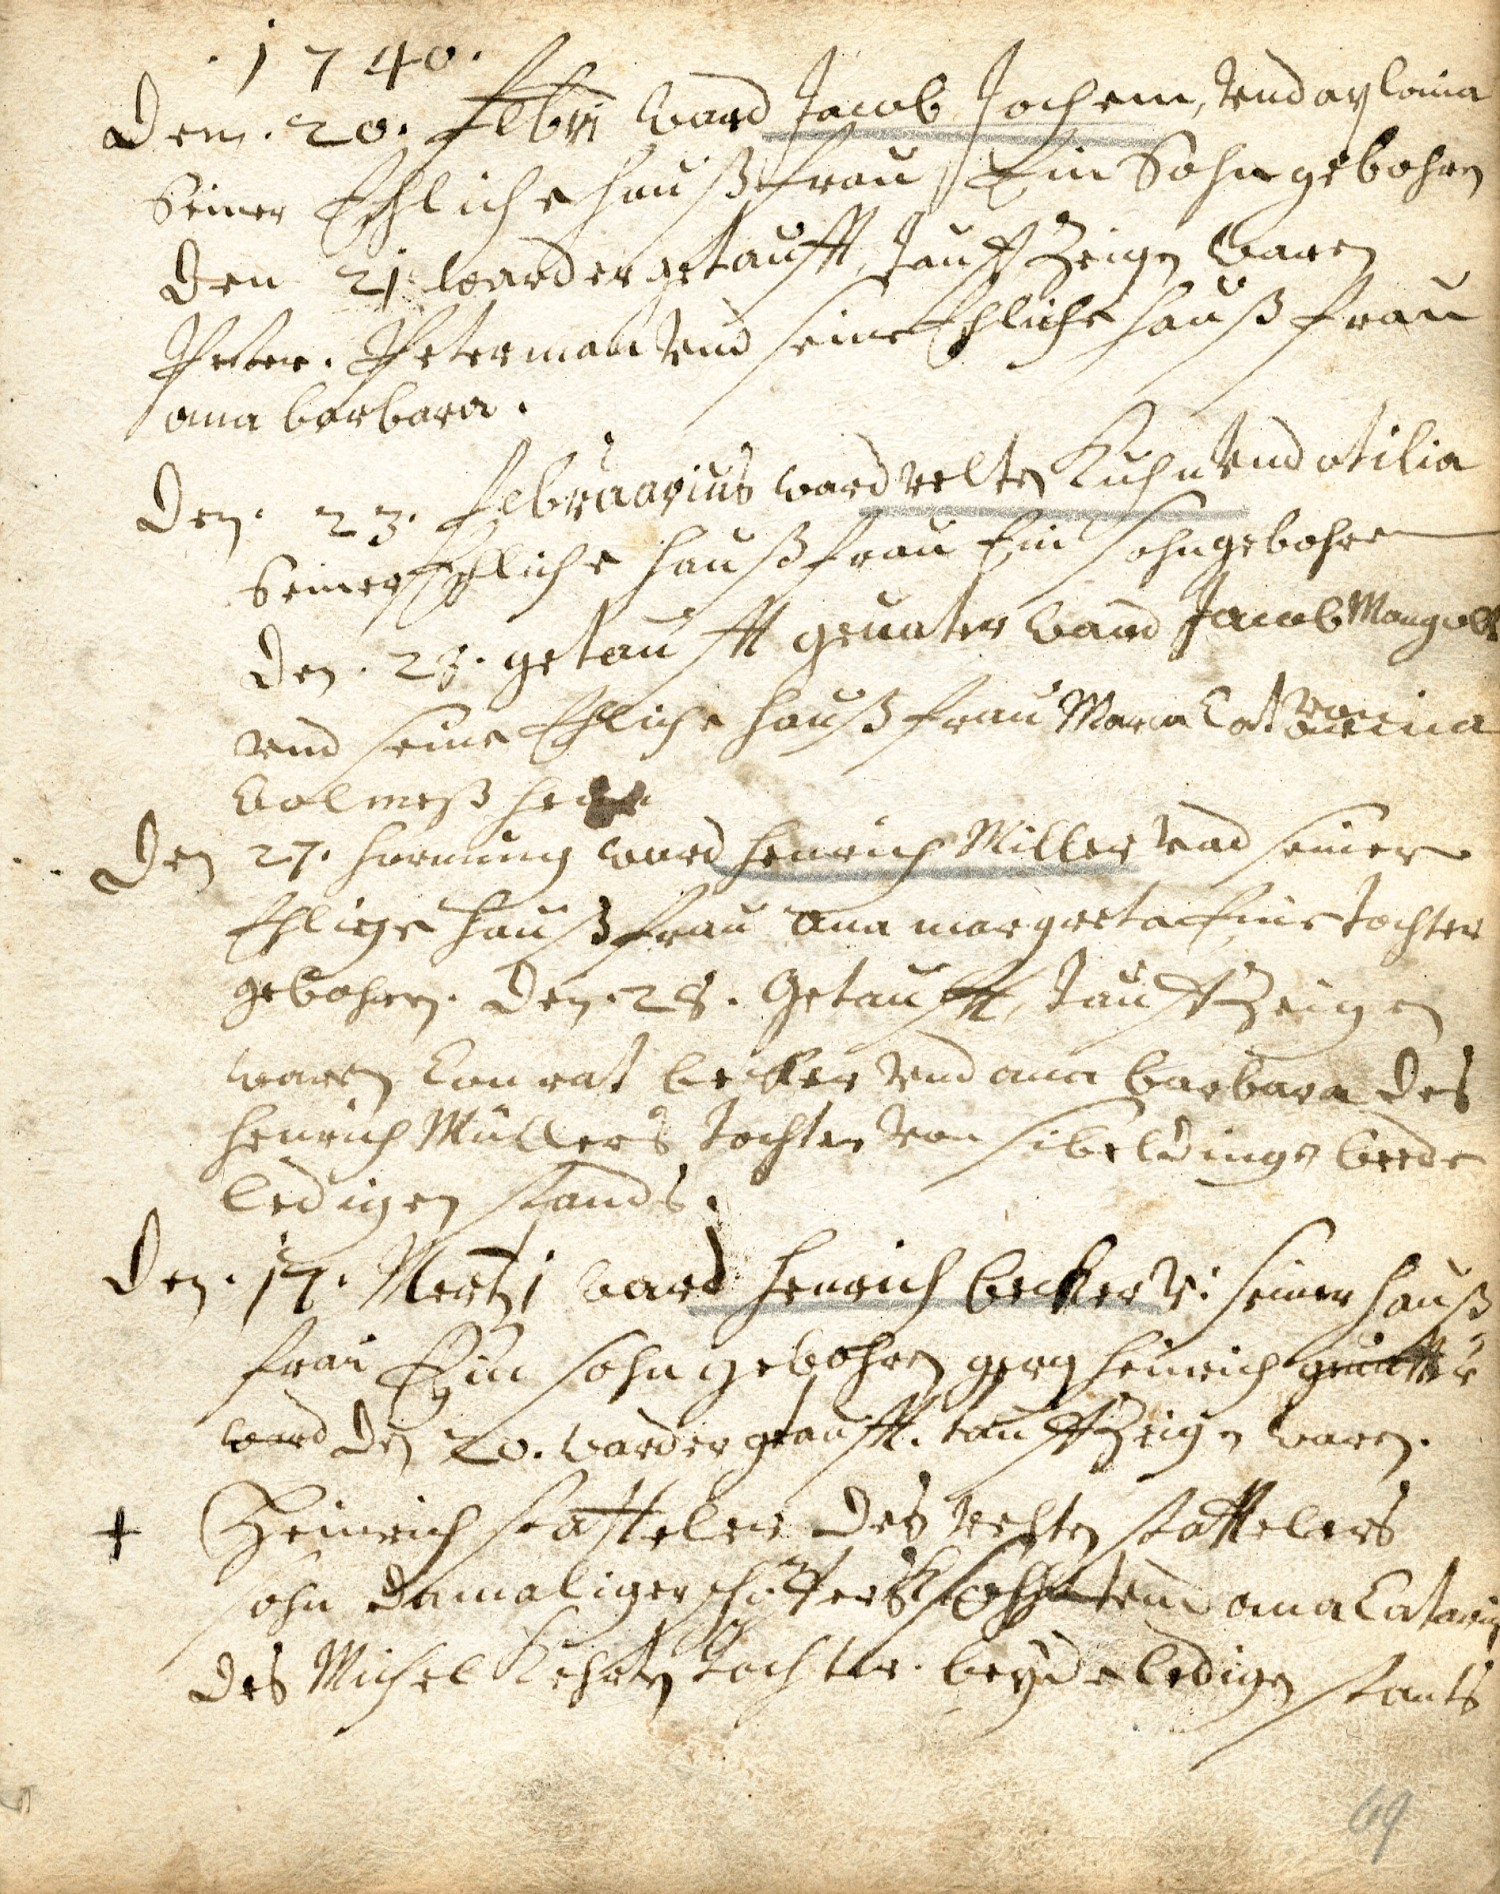 1740.
Den. 20. Febri ward Jacob Jochem, Vnd aplonia
Seiner Ehliche haußfrau Ein Sohn gebohren
Den 21 ward er getaufft, Tauffzeigen waren
Peter. Peterman Vnd seine Ehliche haußfrau
ana barbara.
Den. 23. Februarius ward velten Kuhn Vnd otilia
Seiner Ehliche haußfrau Ein sohn gebohren
Den. 28. getaufft gevater ward Jacob Mangolt
vnd seine Ehliche haußfrau Maria Catarina
Den 27. hornung ward Henrich Miller Vnd seiner
Ehlige haußfrau ana margreta Eine tochter
gebohren. Den. 28. Getaufft, Tauffzeigen
waren Conrat becker Vnd ana barbara des
Henrich Müllers tochter von sibeldingen beede
ledigen stands.
Den. 17. Mertzi ward Henrich becker V: seiner hauß
frau Ein sohn gebohren gerg heinrich
ward den 20. ward er getaufft. tauffzeigen waren.
+ Heinrich statteler des velten stattelers
sohn damaliger Vnd ana Catarin
des Michel tochter. beyde ledigen stants
69